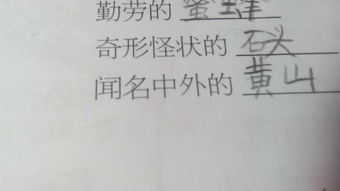 勤劳的 蜜蜂
奇形怪状的 石头
闻名中外的 黄山